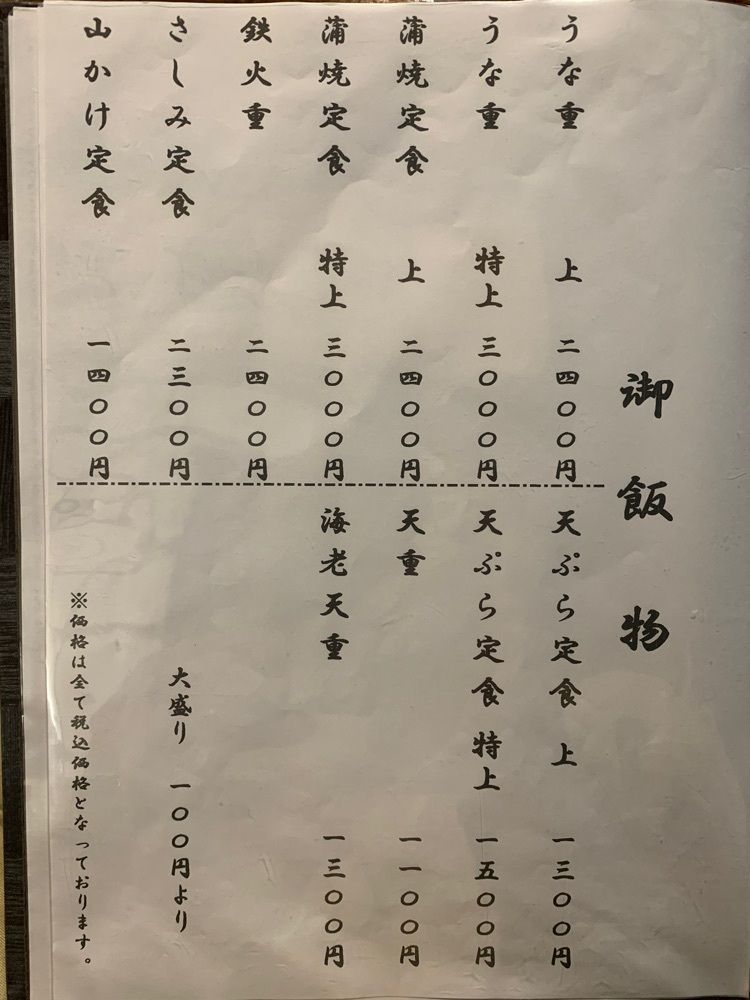 御飯物
うな重 上 二四〇〇円
うな重 特上 三〇〇〇円
蒲焼定食 上 二四〇〇円
蒲焼定食 特上 三〇〇〇円
鉄火重 二四〇〇円
さしみ定食 二三〇〇円
山かけ定食 一四〇〇円
天ぷら定食 上 一三〇〇円
天ぷら定食 特上 一五〇〇円
天重 一一〇〇円
海老天重 一三〇〇円
大盛り 一〇〇円より
※価格は全て税込価格となっております。